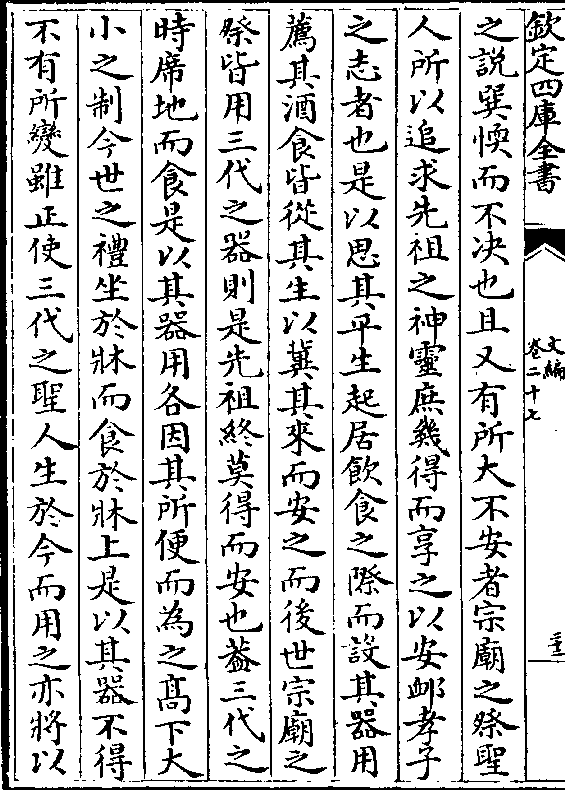 欽定四庫全書
文編
卷二十七
之說巽愞而不決也且又有所大不安者宗廟之祭聖
人所以追求先祖之神靈庶幾得而享之以安卹孝子
之志者也是以思其平生起居飲食之際而設其器用
薦其酒食皆從其生以冀其來而安之而後世宗廟之
祭皆用三代之器則是先祖終莫得而安也葢三代之
時席地而食是以其器用各因其所便而為之髙下大
小之制今世之禮坐於牀而食於牀上是以其器不得
不有所變雖正使三代之聖人生於今而用之亦將以